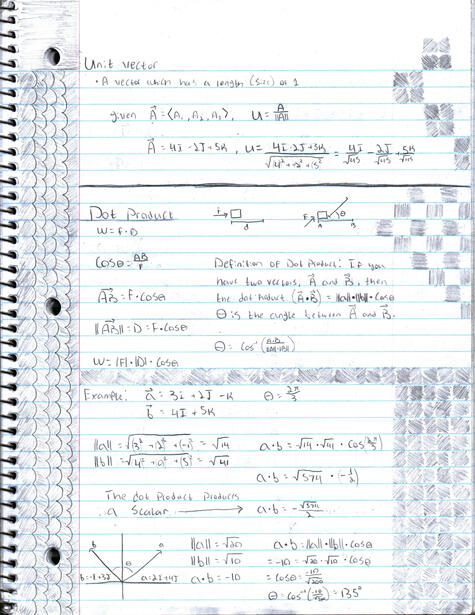 Unit vector
• A vector which has a length (size) of 1
given A⃗ = ⟨A₁, A₂, A₃⟩, U = A/||A||
A⃗ = 4I - 2J + 5K, U = (4I - 2J + 5K)/√(|4|² + |-2|² + |5|²) = 4I/√45 - 2J/√45 + 5K/√45
Dot Product
F
d
F
θ
A
B
W = F · D
Cosθ = AB/F
A⃗B = F · cosθ
||A⃗B|| = D = F · cosθ
W = |F| · |D| · cosθ
Definition of Dot Product: If you
have two vectors, A⃗ and B⃗, then
the dot product (A⃗ · B⃗) = ||a|| · ||b|| · cosθ
θ is the angle between A⃗ and B⃗.
θ = cos⁻¹(A·B/||A||·||B||)
Example: a⃗ = 3i + 2J - K θ = 2π/3
b⃗ = 4I + 5K
||a|| = √(|3|² + |2|² + (-1)²) = √14
||b|| = √(|4|² + |0|² + |5|²) = √41
a · b = √14 · √41 · cos(2π/3)
a · b = √574 · (-1/2)
The dot product produces
a scalar → a · b = -√574/2
b
a
θ
b = -I + 3J
a = 2I + 4J
||a|| = √20
||b|| = √10
a · b = -10
a · b = ||a|| · ||b|| · cosθ
-10 = √20 · √10 · cosθ
= cosθ = -10/√200
θ = cos⁻¹(-10/√200) = 135°